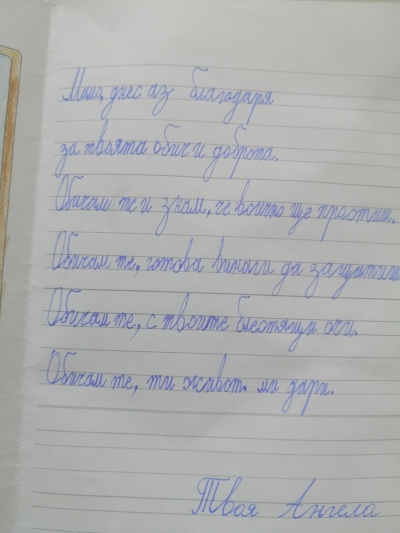 Мамо, днес аз благодаря
за твоята обич и доброта.
Обичам те и знам, че всичко ще простиш.
Обичам те, готова винаги да защитиш
Обичам те, с твоите блестящи очи.
Обичам те, ти живот ми дари.
Твоя Ангела